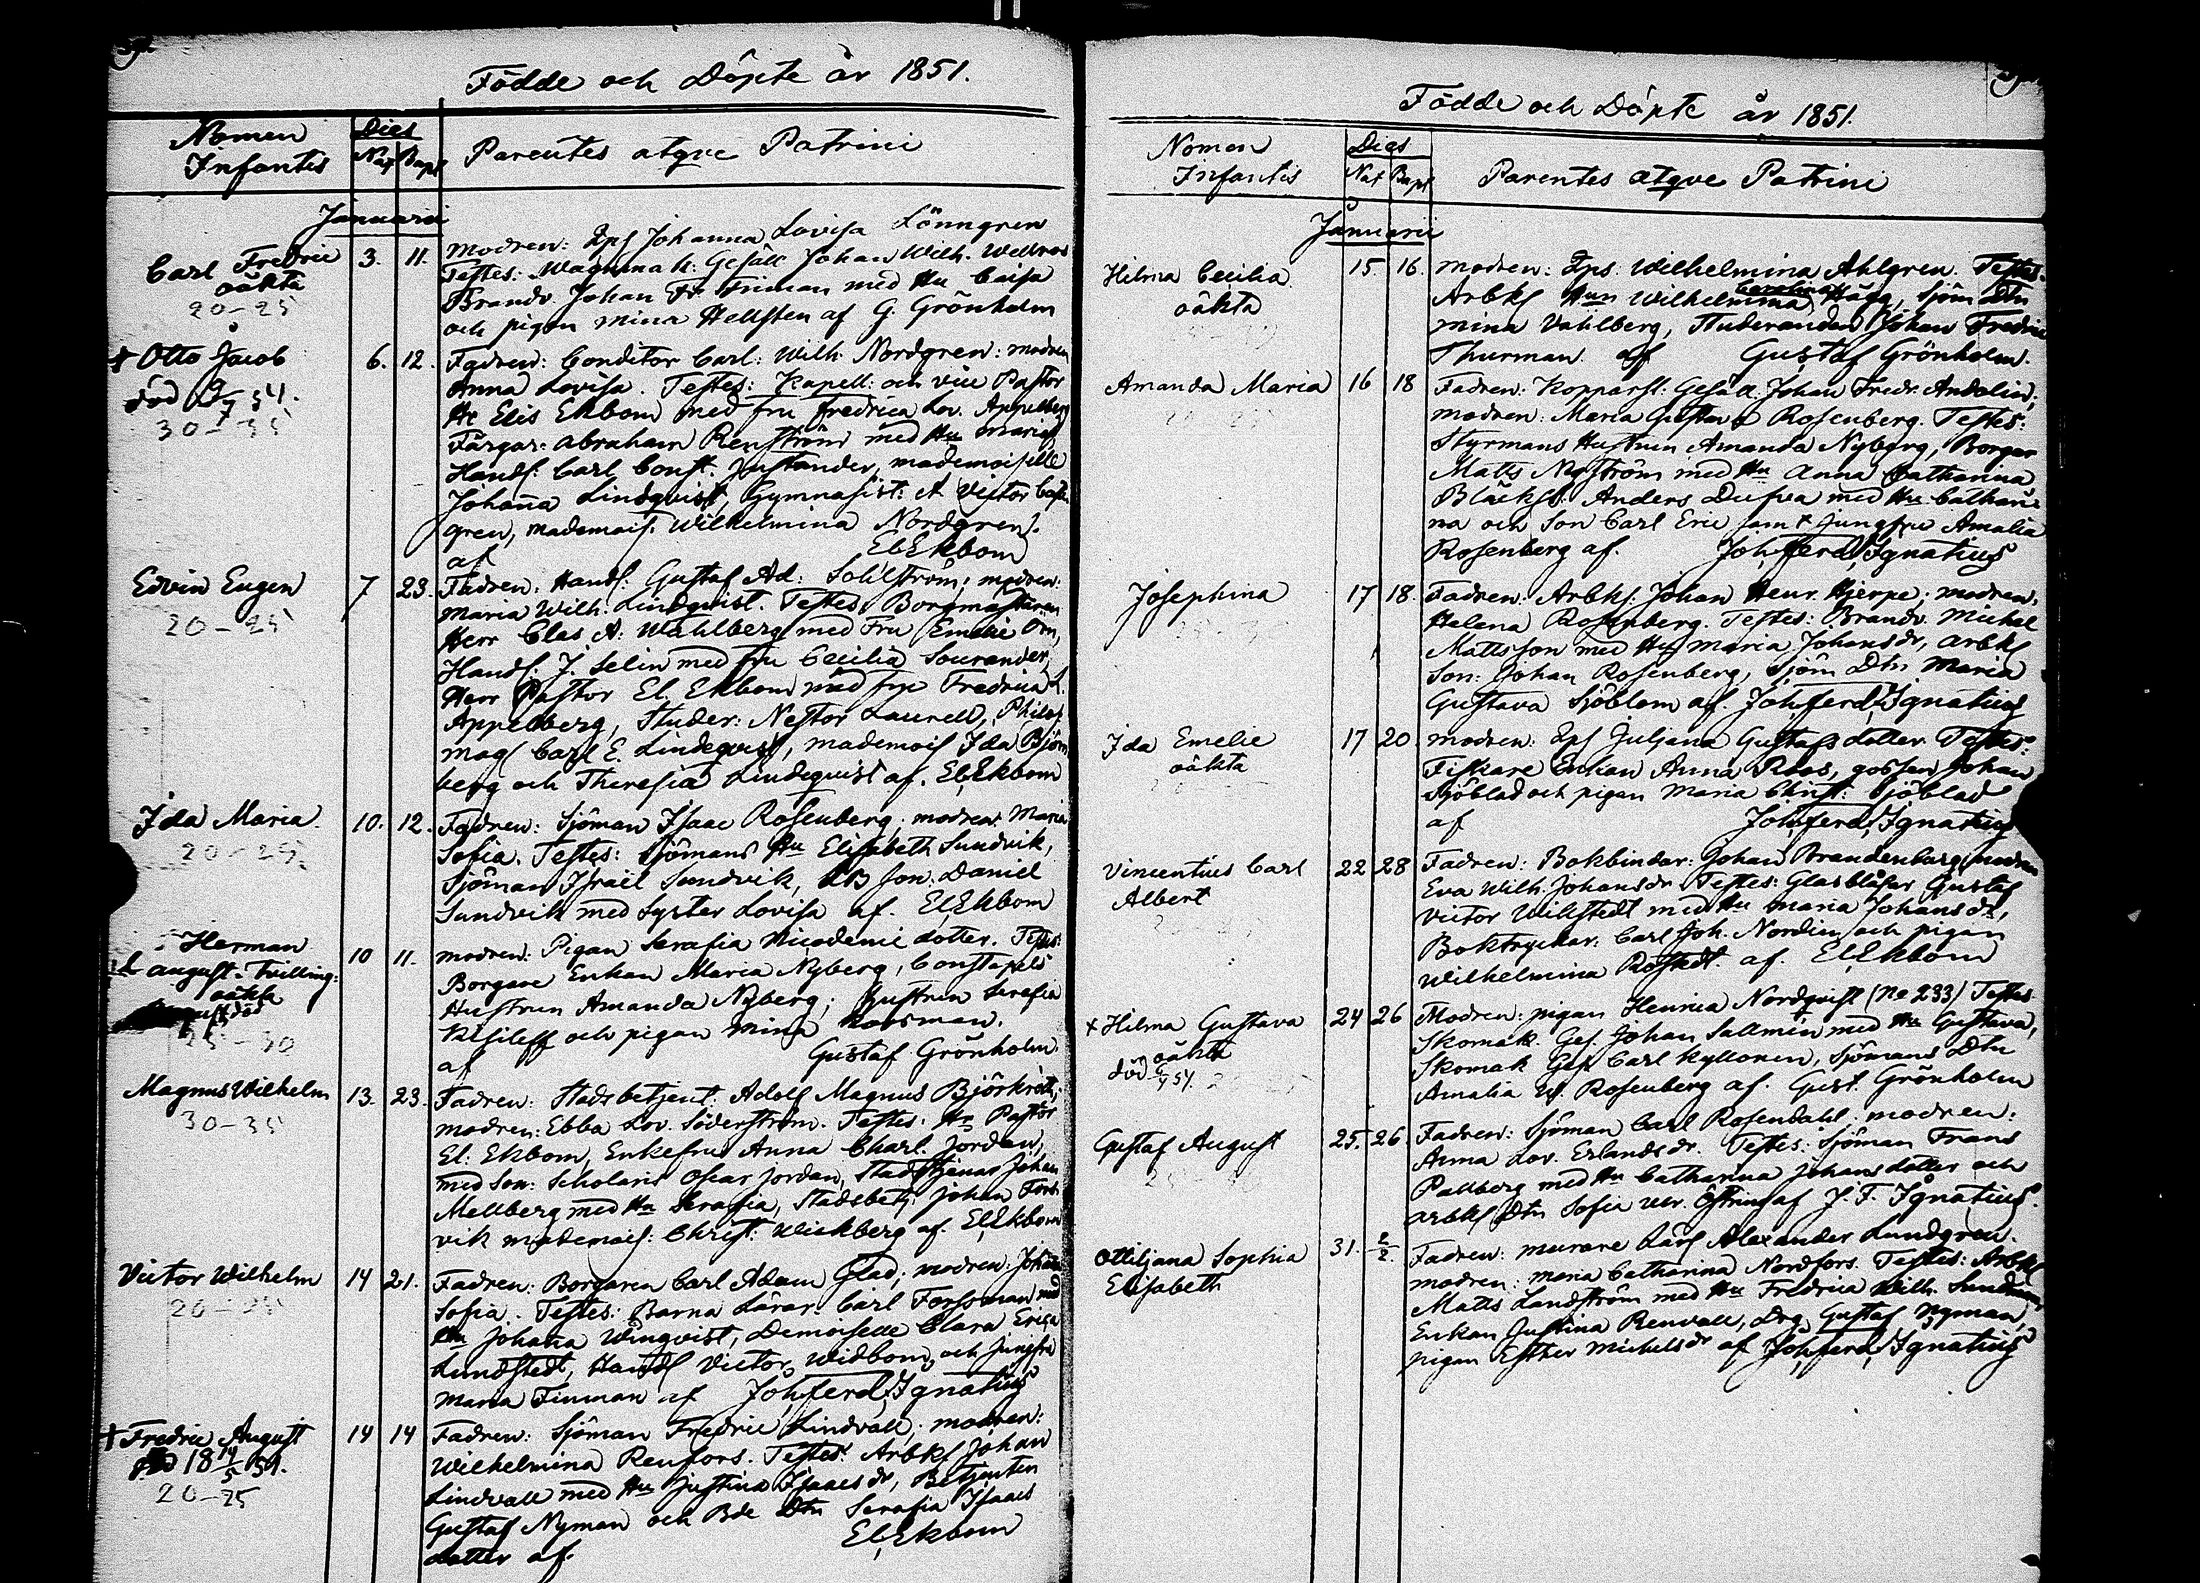 Födde och Döpte år 1851.
Nomen Infantis
Dies
Nat Bapt
Parentes atqve Patrini
Januarii
Carl Fredric
oäkta
20-25
3. 11.
modren: Johanna Lovisa Lönngren
Testes: Wagnmak: Gesäll Johan Wilh.
Brandv. Johan Friman med Hu Caisa
och pigan mina Hellsten af G. Grönholm
+ Otto Jacob
död 9/7 54.
30-35
6. 12.
Fadren: Conditor Carl: Wilh. Nordgren: modren
Anna Lovisa. Testes: Kapell: och vice Pastor
Hr Elis Ekbom med fru fredrica Lov. Appelberg
Färgar: Abraham Renström med Hu Maria
Handl: Carl Const. Justander, mademoiselle
Johanna Lindqvist, Gymnasist: A Victor
gren, mademois. Wilhelmina Nordgren.
af El Ekbom
Edvin Eugen
20-25
7 23.
Fadren. Handl: Gustaf Ad: Sohlström; modren:
Maria Wilh. Lindqvist. Testes Borgmästaren
Herr Clas A: Wahlberg med Fru Emelie
Handl. J. Selin med fru Cecilia Sourander,
Herr Pastor El. Ekbom med fru Fredrica L.
Appelberg, Studer: Nestor Laurell, Philos.
mag Carl E. Lindeqvist, mademois Ida Björn
berg och Theresia Lindeqvist af. El Ekbom
Ida Maria.
20-25
10. 12.
Fadren: Sjöman Isaac Rosenberg; modren: Maria
Sofia. Testes: Sjömans Hu Elisabeth Sundvik,
Sjöman Israel Sundvik, Son: Daniel
Sundvik med Syster Lovisa af. El Ekbom
Herman
August Tvilling:
oäkta
25-30
10 11.
modren: Pigan Serafia Nicodemi dotter. Testes:
Borgare Enkan Maria Nyberg, Constapels
Hustrun Amanda Nyberg; Hustrun Serafia
och pigan Mina Roosman.
af Gustaf Grönholm.
Magnus Wilhelm
30-35
13. 23.
Fadren: Stadsbetjent. Adolf Magnus Björkroth;
modren: Ebba Lov. Söderström. Testes: Hr Pastor
El. Ekbom, Enkefru Anna Charl. Jordan,
med Son: Scholaris Oscar Jordan, Johan
Mellberg med Hu Serafia, Stadsbetj: Johan Fors
vik mademois: Christ: Wickberg af. El Ekbom
Victor Wilhelm
20-25
14 21.
Fadren: Borgaren Carl Adam Glad; modren: Johanna
Sofia. Testes: Barna Lärar: Carl Forssman med
Hu Johanna Winqvist, Demoiselle Clara Erica
Lundstedt, Handl Victor Widbom, och Jungfru
Maria Finman af Joh. ferd. Ignatius
+ Fredric August
död 18 14/5 51.
20-25
14 14
Fadren: Sjöman Fredric Lindvall; modren:
Wilhelmina Renfors. Testes: Arbk. Johan
Lindvall med Hu Justina Isaacs dr, Betjenten
Gustaf Nyman och Bde Dtn Serafia Isaacs
dotter af. El Ekbom
Födde och Döpte år 1851.
Nomen Infantis
Dies
Nat Bapt
Parentes atqve Patrini
Januarii
Hilma Cecilia
oäkta
15. 16.
modren: Wilhelmina Ahlgren. Testes.
Arbks Hun Wilhelmina Carolina Hägg, Sjöm Dtn
mina Vahlberg, Studeranden Johan Fredric
Thurman. af Gustaf Grönholm.
Amanda Maria
16 18
Fadren: Kopparsl: Gesäll Johan Fredr. Andelin;
modren: Maria Gustava Rosenberg. Testes:
Styrmans Hustrun Amanda Nyberg, Borgar
Matts Nyström med Hu Anna Catharina
Bläcksl. Anders Dufva med Hu Cathari
na och Son Carl Eric samt jungfru Amalia
Rosenberg af. Joh. ferd. Ignatius
Josephina
17 18.
Fadren: Arbk. Johan Henr. Hjerpe; modren,
Helena Rosenberg. Testes: Brandv. Michel
Mattsson med Hu Maria Johansdr, arbk
Son: Johan Rosenberg, Sjöm Dtn Maria
Gustava Sjöblom af. Joh. ferd. Ignatius
Ida Emelie
oäkta
17 20.
modren: Juljana Gustafs dotter Testes:
Fiskare Enkan Anna Roos, gossen Johan
Sjöblad och pigan Maria Christ: Sjöblad
af Joh. ferd. Ignatius
Vincentius Carl
Albert
22 28
Fadren: Bokbindar: Johan Brandenburg; modren
Eva Wilh. Johansdr Testes: Glasblåsar Gustaf
Victor Wikstedt med Hu Maria Johansdr,
Boktryckar: Carl Joh. Nordin och pigan
Wilhelmina Röstedt. af. El Ekbom
+ Hilma Gustava
oäkta
24 26
Modren: pigan Henrica Nordqvist (No 233) Testes
Skomak. Ges. Johan Sallmén med Hu Gustava,
Skomak Ges Carl Kyllonen, Sjömans Dtn
Amalia W. Rosenberg af. Gust. Grönholm
Gustaf August
25. 26
Fadren: Sjöman Carl Rosendahl: modren:
Anna Lov. Erlandsdr. Testes: Sjöman Frans
Pallberg med Hu Catharina Johans dotter och
Arbks Dtn Sofia Ulr. Öström af J. F. Ignatius.
Ottiljana Sophia
Elisabeth
31. 2/2.
Fadren: murare Lars Alexander Lundgren.
modren: Maria Catharina Nordfors. Testes: Arbk
Matts Landström med Hu Fredrica Wilh.
Enkan Justina Renvall, Drg Gustaf Nyman,
pigan Esther Michelsdr af Joh. ferd. Ignatius